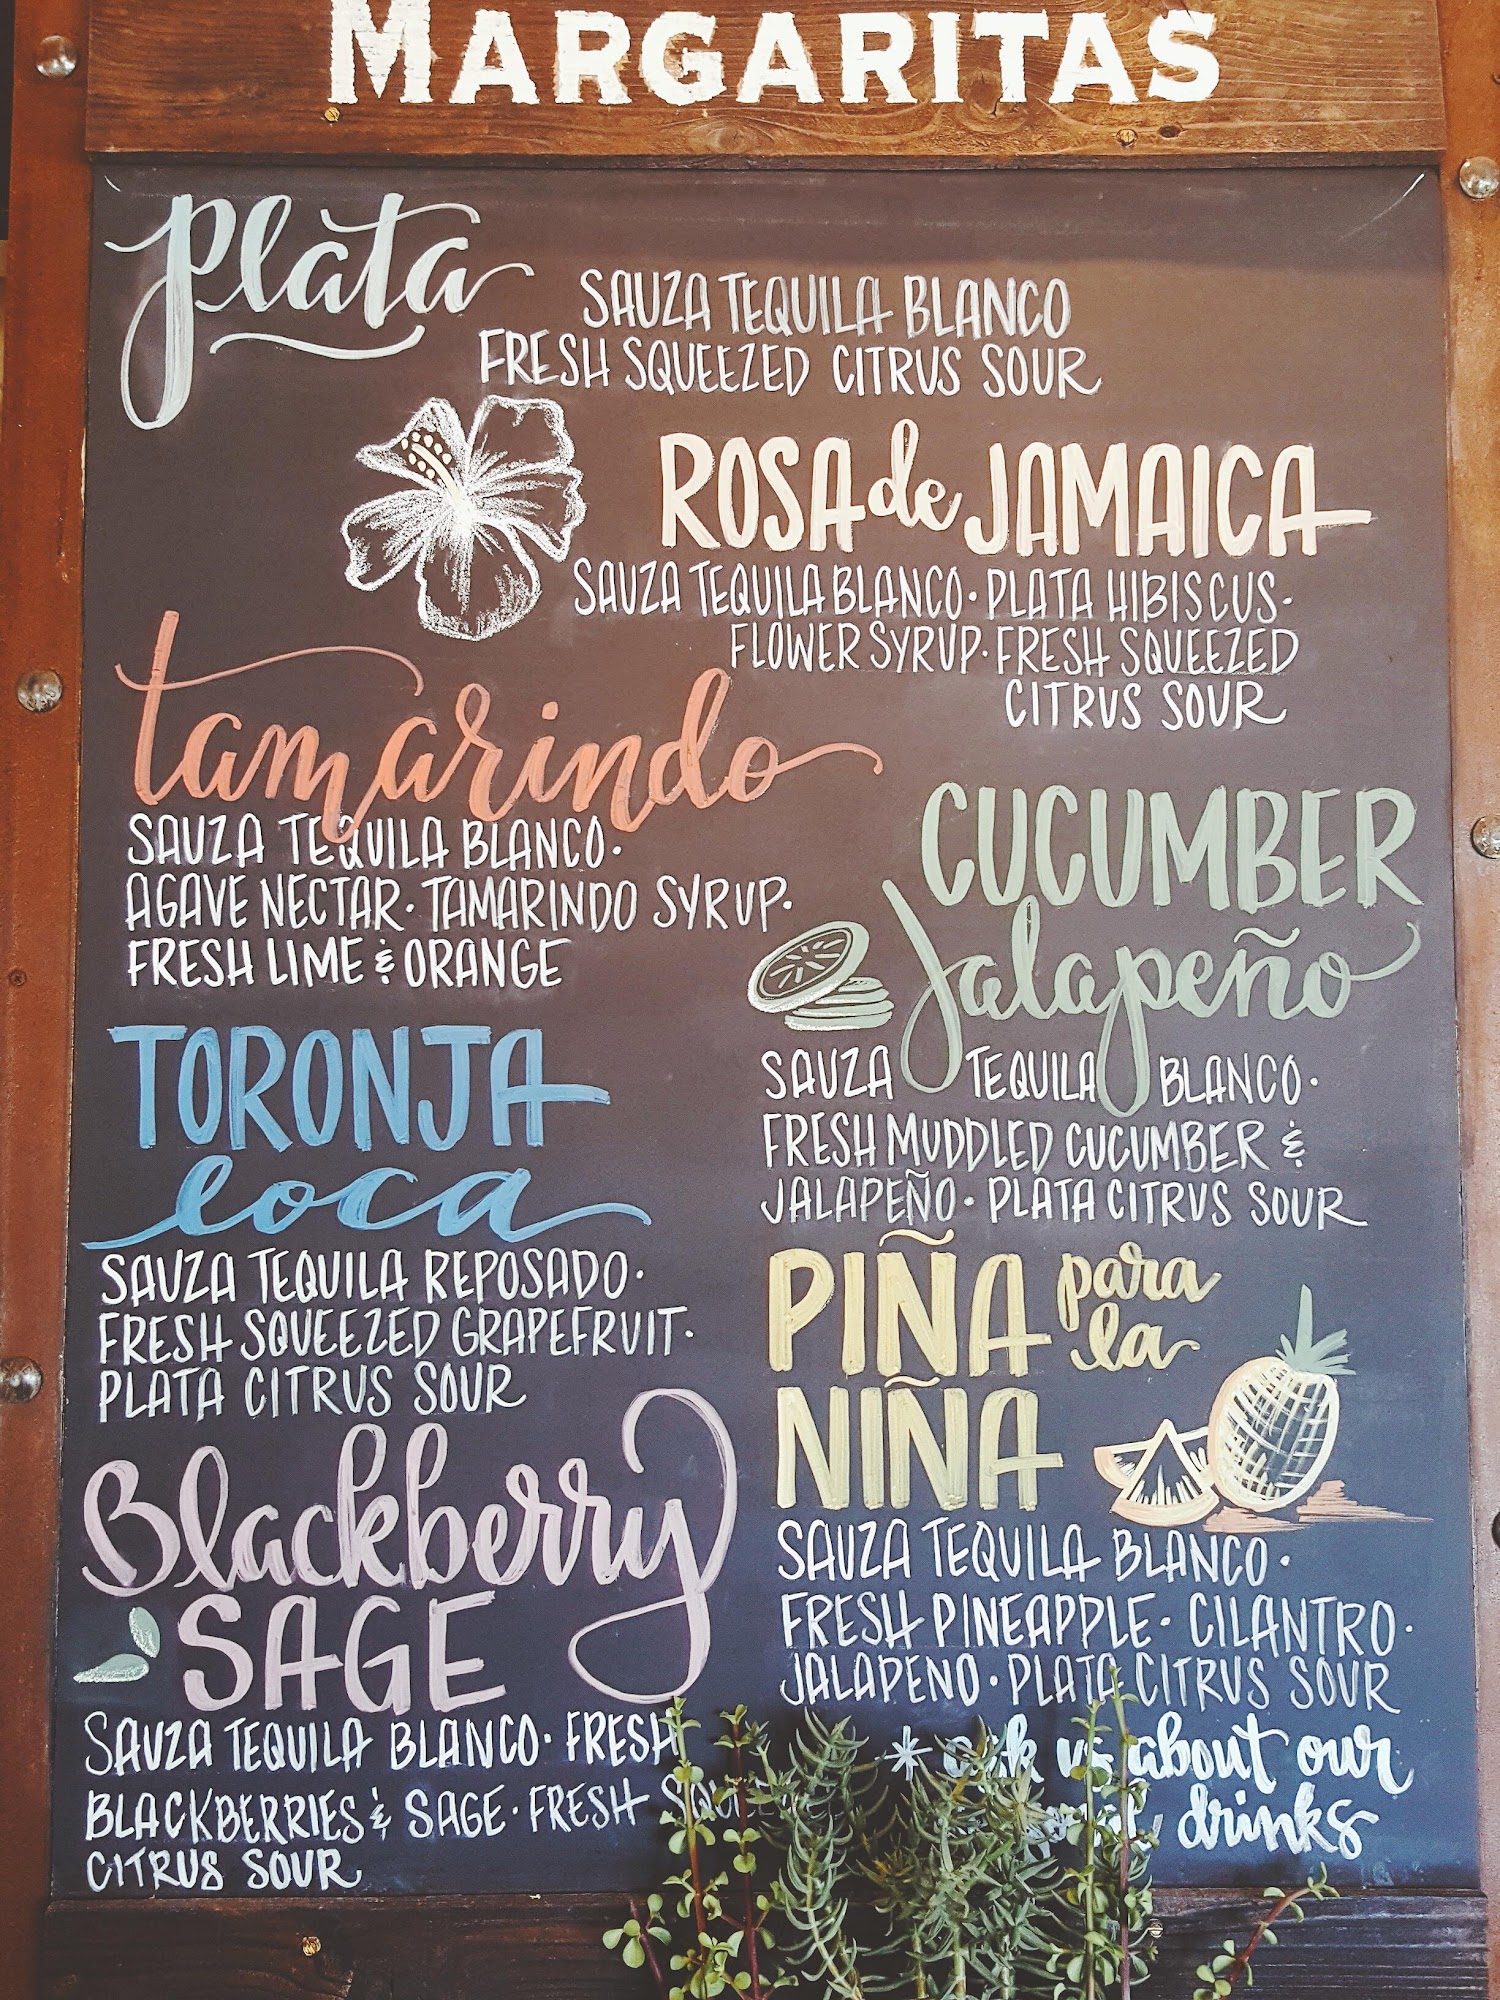 MARGARITAS
plata
SAUZA TEQUILA BLANCO
FRESH SQUEEZED CITRUS SOUR
ROSA de JAMAICA
SAUZA TEQUILA BLANCO · PLATA HIBISCUS ·
FLOWER SYRUP · FRESH SQUEEZED
CITRUS SOUR
tamarindo
SAUZA TEQUILA BLANCO ·
AGAVE NECTAR · TAMARINDO SYRUP ·
FRESH LIME & ORANGE
CUCUMBER
Jalapeño
SAUZA TEQUILA BLANCO ·
FRESH MUDDLED CUCUMBER &
JALAPEÑO · PLATA CITRUS SOUR
TORONJA
loca
SAUZA TEQUILA REPOSADO ·
FRESH SQUEEZED GRAPEFRUIT ·
PLATA CITRUS SOUR
PIÑA para
la
NIÑA
SAUZA TEQUILA BLANCO ·
FRESH PINEAPPLE · CILANTRO ·
JALAPENO · PLATA CITRUS SOUR
Blackberry
SAGE
SAUZA TEQUILA BLANCO · FRESH
BLACKBERRIES & SAGE · FRESH
CITRUS SOUR
* ask us about our
drinks